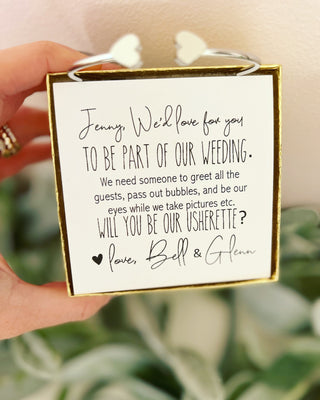 Jenny, We'd love for you
TO BE PART OF OUR WEEDING.
We need someone to greet all the
guests, pass out bubbles, and be our
eyes while we take pictures etc.
WILL YOU BE OUR USHERETTE?
♥ love, Bell & Glenn